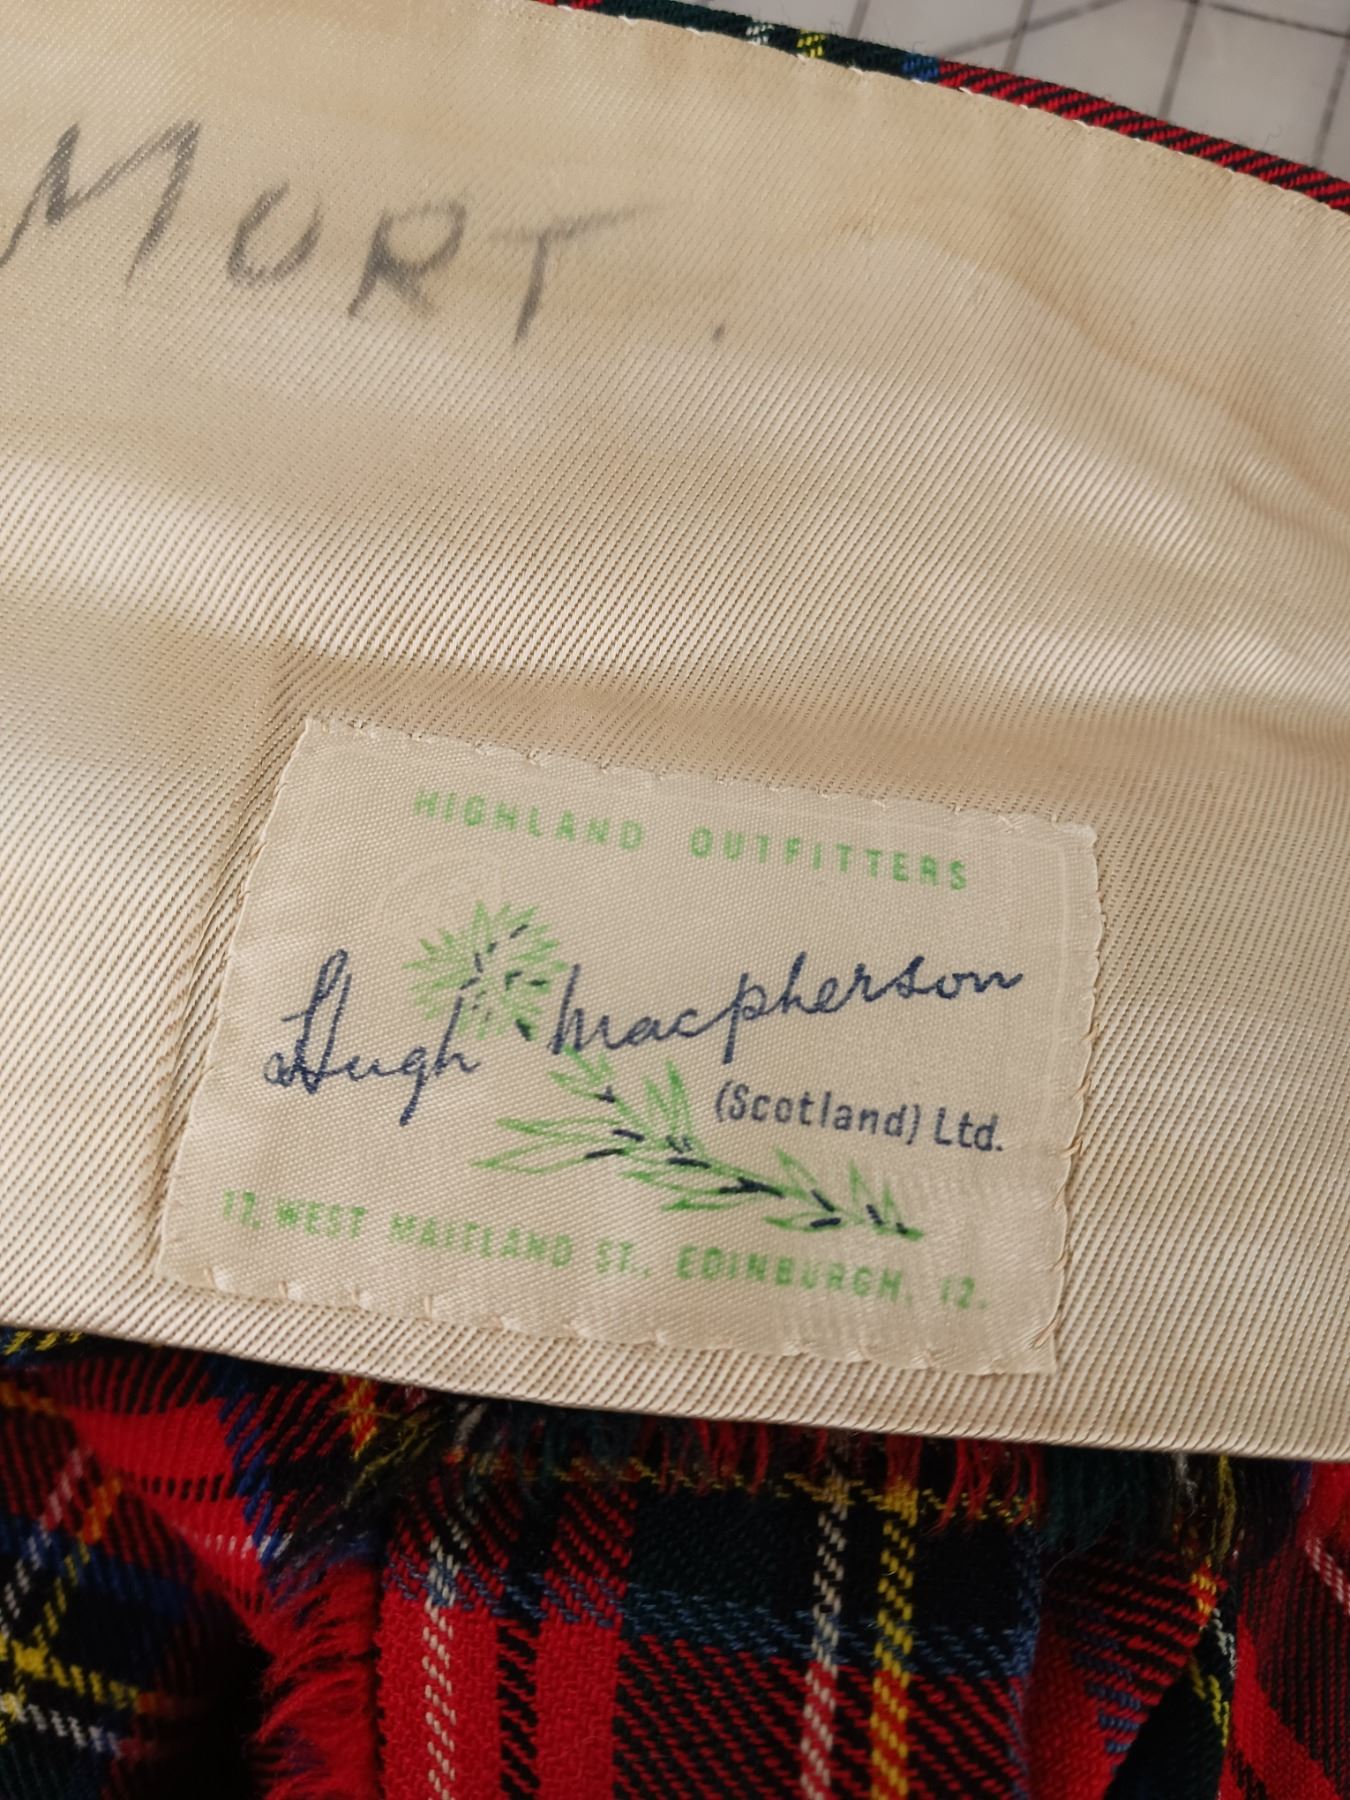 MURT.
HIGHLAND OUTFITTERS
Hugh Macpherson
(Scotland) Ltd.
17, WEST MAITLAND ST., EDINBURGH, 12.